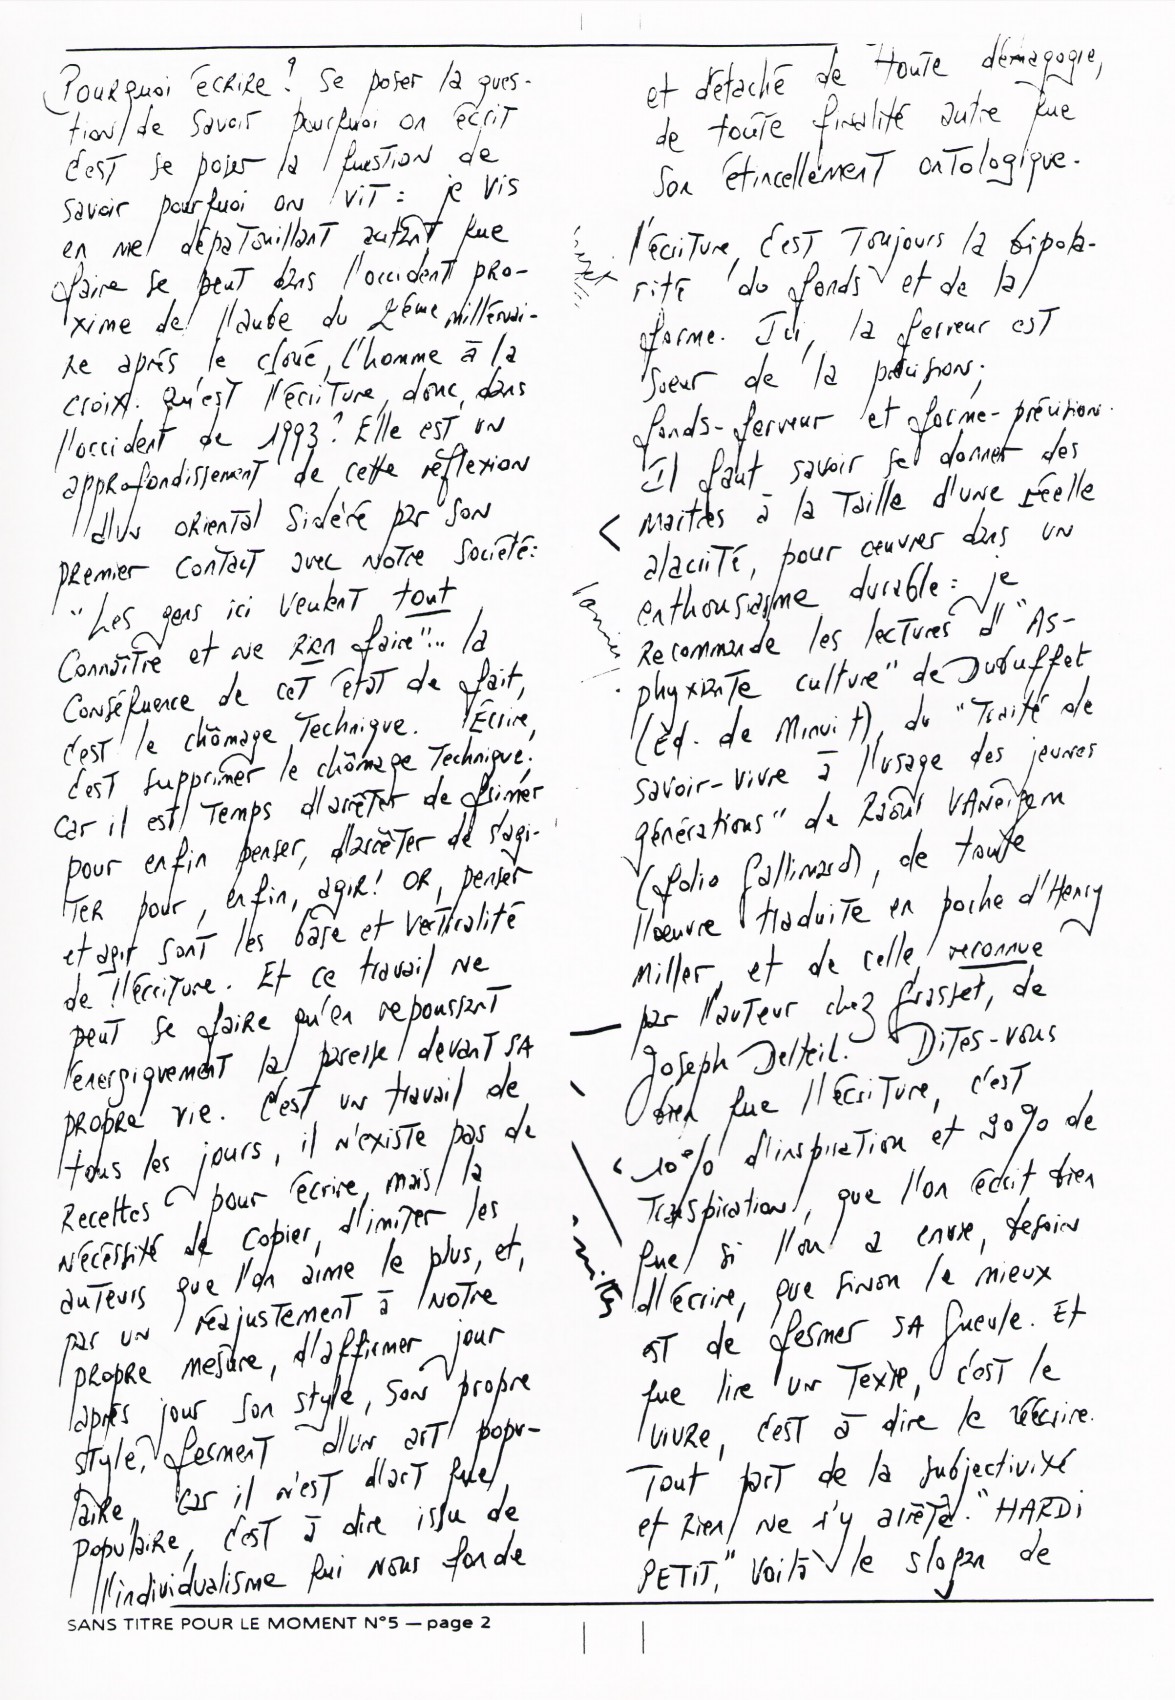 Pourquoi écrire? Se poser la ques-
tion de savoir pourquoi on écrit
c'est se poser la question de
savoir pourquoi on vit: je vis
en me dépatouillant autant que
faire se peut dans l'occident pro-
xime de l'aube du 2ème millénai-
re après le cloué, l'homme à la
croix. Qu'est l'écriture, donc, dans
l'occident de 1993? Elle est un
approfondissement de cette réflexion
d'un oriental sidéré par son
premier contact avec notre société:
"Les gens ici veulent tout
connaître et ne rien faire"... la
conséquence de cet état de fait,
c'est le chômage technique. Écrire,
c'est supprimer le chômage technique.
Car il est temps d'arrêter de frimer
pour enfin penser, d'arrêter de s'agi-
ter pour, enfin, agir! Or, penser
et agir sont les base et verticalité
de l'écriture. Et ce travail ne
peut se faire qu'en repoussant
énergiquement la paresse devant SA
propre vie. C'est un travail de
tous les jours, il n'existe pas de
recettes pour écrire, mais la
nécessité de copier, d'imiter les
auteurs que l'on aime le plus, et,
par un réajustement à notre
propre mesure, d'affirmer jour
après jour son style, son propre
style, ferment d'un art popu-
laire, car il n'est d'art que
populaire, c'est à dire issu de
l'individualisme qui nous fonde
et détaché de toute démagogie,
de toute finalité autre que
son étincellement ontologique.
l'écriture, c'est toujours la bipola-
rité du fonds et de la
forme. Ici, la ferveur est
soeur de la précision;
fonds-ferveur et forme-précision.
Il faut savoir se donner des
maîtres à la taille d'une réelle
alacrité, pour œuvrer dans un
enthousiasme durable: je
recommande les lectures d'"As-
phyxiante culture" de Dubuffet
(Ed. de Minuit), du "Traité de
savoir-vivre à l'usage des jeunes
générations" de Raoul Vaneigem
(folio Gallimard), de toute
l'œuvre traduite en poche d'Henry
Miller, et de celle reconnue
par l'auteur chez Grasset, de
Joseph Delteil. Dites-vous
bien que l'écriture, c'est
10% d'inspiration et 90% de
transpiration, que l'on écrit bien
que si l'on a envie, besoin
d'écrire, que sinon le mieux
est de fermer SA gueule. Et
que lire un texte, c'est le
vivre, c'est à dire le réécrire.
Tout part de la subjectivité
et rien ne s'y arrête. "HARDI
PETIT," voilà le slogan de
SANS TITRE POUR LE MOMENT N°5 — page 2